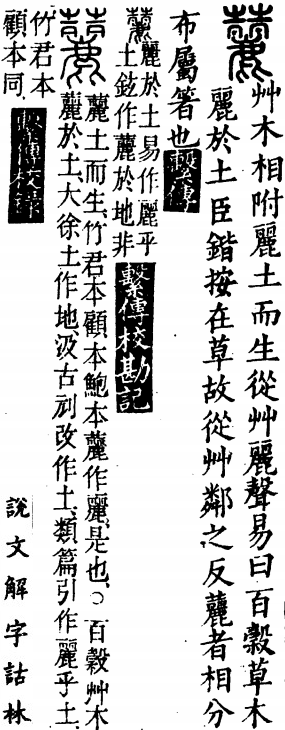 蘿艸木相附麗土而生從艸麗聲易曰百穀草木
麗於土臣鍇按在草故從艸鄰之反蘿者相分
布屬箸也繫傳
麗於土易作麗乎
土鉉作蘿於地非繫傳校勘記
蘿土而生、竹君本顧本鮑本蘿作麗、是也、○百穀艸木
蘿於土、大徐土作地、汲古剜改作土、類篇引作麗乎土、
竹君本
顧本同、繫傳校錄
說文解字詁林